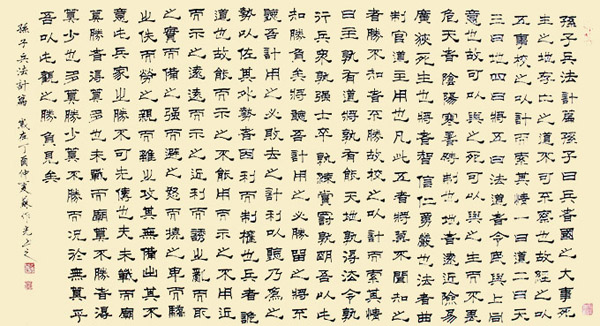 孫子兵法計篇孫子曰兵者國之大事死
生之地存亡之道不可不察也故經之以
五事校之以計而索其情一曰道二曰天
三曰地四曰將五曰法道者令民與上同
意也故可以與之死可以與之生而不畏
危天者陰陽寒暑時制也地者遠近險易
廣狹死生也將者智信仁勇嚴也法者曲
制官道主用也凡此五者將莫不聞知之
者勝不知者不勝故校之以計而索其情
曰主孰有道將孰有能天地孰得法令孰
行兵衆孰強士卒孰練賞罰孰明吾以此
知勝負矣將聽吾計用之必勝留之將不
聽吾計用之必敗去之計利以聽乃爲之
勢以佐其外勢者因利而制權也兵者詭
道也故能而示之不能用而示之不用近
而示之遠遠而示之近利而誘之亂而取
之實而備之强而避之怒而撓之卑而驕
之佚而勞之親而離之攻其無備出其不
意此兵家之勝不可先傳也夫未戰而廟
算勝者得算多也未戰而廟算不勝者得
算少也多算勝少算不勝而況於無算乎
吾以此觀之勝負見矣
孫子兵法計篇 歲在丁酉仲夏蘇作光